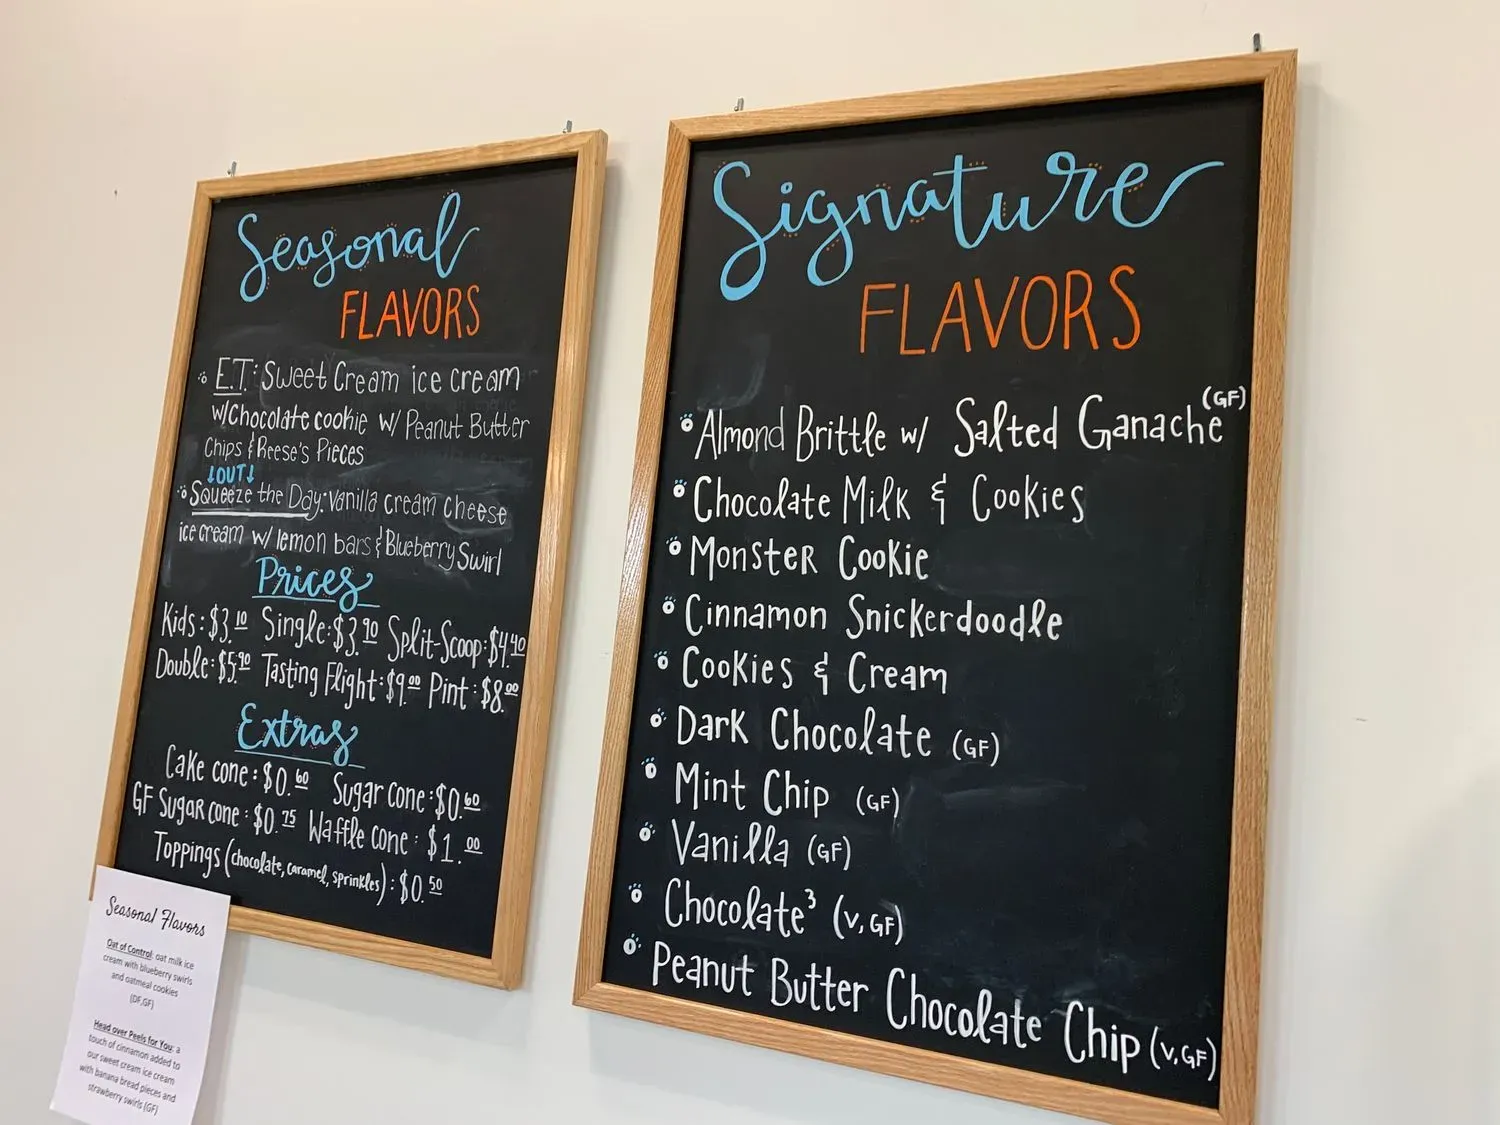 Seasonal
FLAVORS
E.T.: Sweet Cream ice cream
w/Chocolate cookie w/ Peanut Butter
Chips & Reese's Pieces
↓OUT↓
Squeeze the Day: Vanilla cream cheese
ice cream w/ lemon bars & Blueberry Swirl
Prices
Kids: $3.10 Single: $3.90 Split-Scoop: $4.40
Double: $5.90 Tasting Flight: $9.00 Pint: $8.00
Extras
Cake cone: $0.60 Sugar cone: $0.60
GF Sugar cone: $0.75 Waffle cone: $1.00
Toppings (chocolate, caramel, sprinkles): $0.50
Seasonal Flavors
Out of Control: oat milk ice
cream with blueberry swirls
and oatmeal cookies
(DF,GF)
Head over Peels for You: a
touch of cinnamon added to
our sweet cream ice cream
with banana bread pieces and
strawberry swirls (GF)
Signature
FLAVORS
Almond Brittle w/ Salted Ganache (GF)
Chocolate Milk & Cookies
Monster Cookie
Cinnamon Snickerdoodle
Cookies & Cream
Dark Chocolate (GF)
Mint Chip (GF)
Vanilla (GF)
Chocolate³ (V, GF)
Peanut Butter Chocolate Chip (V, GF)